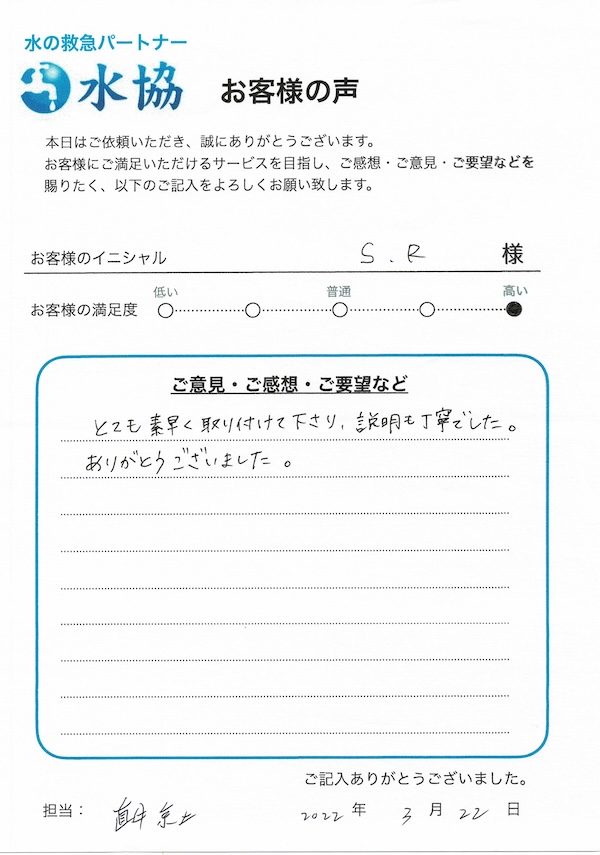 水の救急パートナー
水協 お客様の声
本日はご依頼いただき、誠にありがとうございます。
お客様にご満足いただけるサービスを目指し、ご感想・ご意見・ご要望などを
賜りたく、以下のご記入をよろしくお願い致します。
お客様のイニシャル S.R 様
低い 普通 高い
お客様の満足度
ご意見・ご感想・ご要望など
とても素早く取り付けて下さり、説明も丁寧でした。
ありがとうございました。
ご記入ありがとうございました。
担当： 2022年 3月 22日